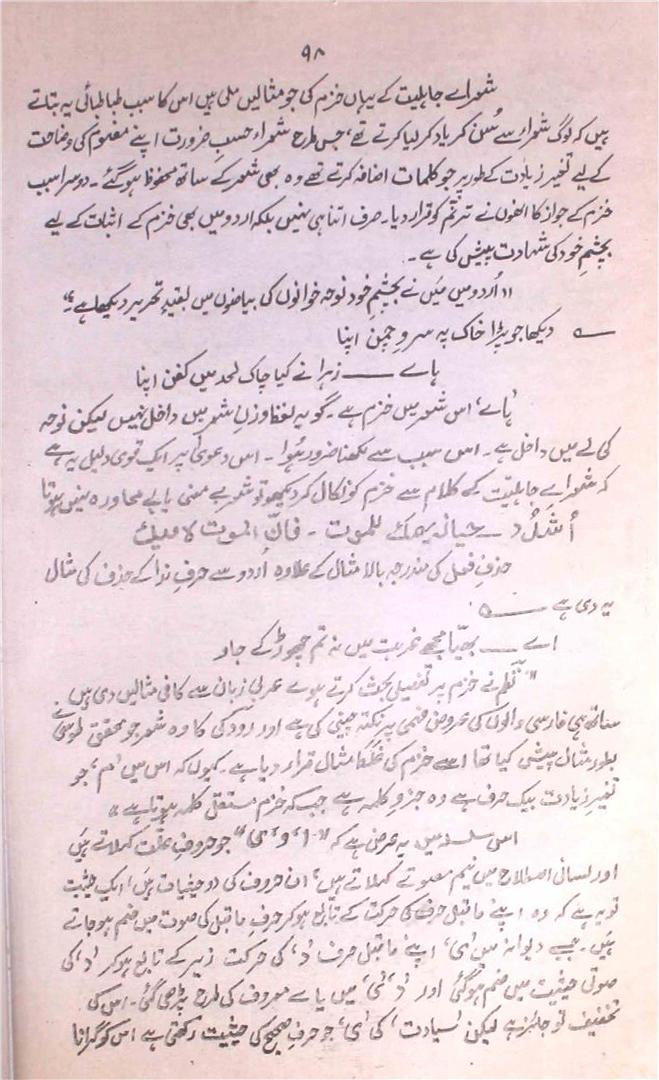 ۹۸
شعراے جاہلیت کے یہاں خزم کی جو مثالیں ملی ہیں اس کا سبب طباطبائی یہ بتاتے
ہیں کہ لوگ شعراء سے سُن کر یاد کر لیا کرتے تھے، جس طرح شعراء حسبِ ضرورت اپنے مفہوم کی وضاحت
کے لیے تغیر زیادت کے طور پر جو کلمات اضافہ کرتے تھے وہ بھی شعر کے ساتھ محفوظ ہو گئے۔ دوسرا سبب
خزم کے جواز کا انھوں نے ترنّم کو قرار دیا۔ صرف اتنا ہی نہیں بلکہ اردو میں بھی خزم کے اثبات کے لیے
بچشمِ خود کی شہادت پیش کی ہے۔
"اُردو میں مَیں نے بچشمِ خود نوحہ خوانوں کی بیاضوں میں بقیدِ تحریر دیکھا ہے؎"
؎ دیکھا جو پڑا خاک پہ سروِ چمن اپنا
ہاے ــــ زہرا نے کیا چاک لحد میں کفن اپنا
'ہاے' اس شعر میں خزم ہے۔ گو یہ لفظ وزنِ شعر میں داخل نہیں لیکن نوحہ
کی لَے میں داخل ہے۔ اس سبب سے لکھنا ضرور ہُوا۔ اس دعویٰ پر ایک قوی دلیل یہ ہے
کہ شعراے جاہلیّت کے کلام سے خزم کو نکال کر دیکھو تو شعر بے معنی یا بے محاورہ نہیں ہوتا
اُشدُد ــ حیازیمک للموت ۔ فانّ الموت لاقیک
حذفِ فعل کی مندرجہ بالا مثال کے علاوہ اُردو سے حرفِ ندا کے حذف کی مثال
یہ دی ہے ــــ ؎
اے ــــ بھیّا مجھے غربت میں نہ تم چھوڑ کے جاو
"نظم نے خزم پر تفصیلی بحث کرتے ہوے عربی زبان سے کافی مثالیں دی ہیں
ساتھ ہی فارسی والوں کی عروض فہمی پر نکتہ چینی کی ہے اور رودکی کا وہ شعر جو محقق طوسی نے
بطور مثال پیش کیا تھا اسے خزم کی غلط مثال قرار دیا ہے۔ کیوں کہ اس میں 'م' جو
تغیرِ زیادت بیک حرف ہے وہ جزوِ کلمہ ہے جب کہ خزم مستقل کلمہ ہوتا ہے"
اس سلسلہ میں یہ عرض ہے کہ "ا، و، ی" جو حروفِ علّت کہلاتے ہیں
اور لسانی اصطلاح میں نیم مصوتے کہلاتے ہیں، ان حروف کی دو حیثیات ہیں، ایک حیثیت
تو یہ ہے کہ وہ اپنے ماقبل حرف کی حرکت کے تابع ہو کر حرف ماقبل کی صوت میں ضم ہو جاتے
ہیں۔ جیسے دیوانہ میں 'ی' اپنے ماقبل حرف 'د' کی حرکت زیر کے تابع ہو کر 'د' کی
صوتی حیثیت میں ضم ہو گئی اور 'د' 'ی' میں یاے معروف کی طرح پڑھی گئی۔ اس کی
تخفیف تو جائز ہے لیکن 'سیادت' کی 'ی' جو حرف صحیح کی حیثیت رکھتی ہے اس کو گرانا